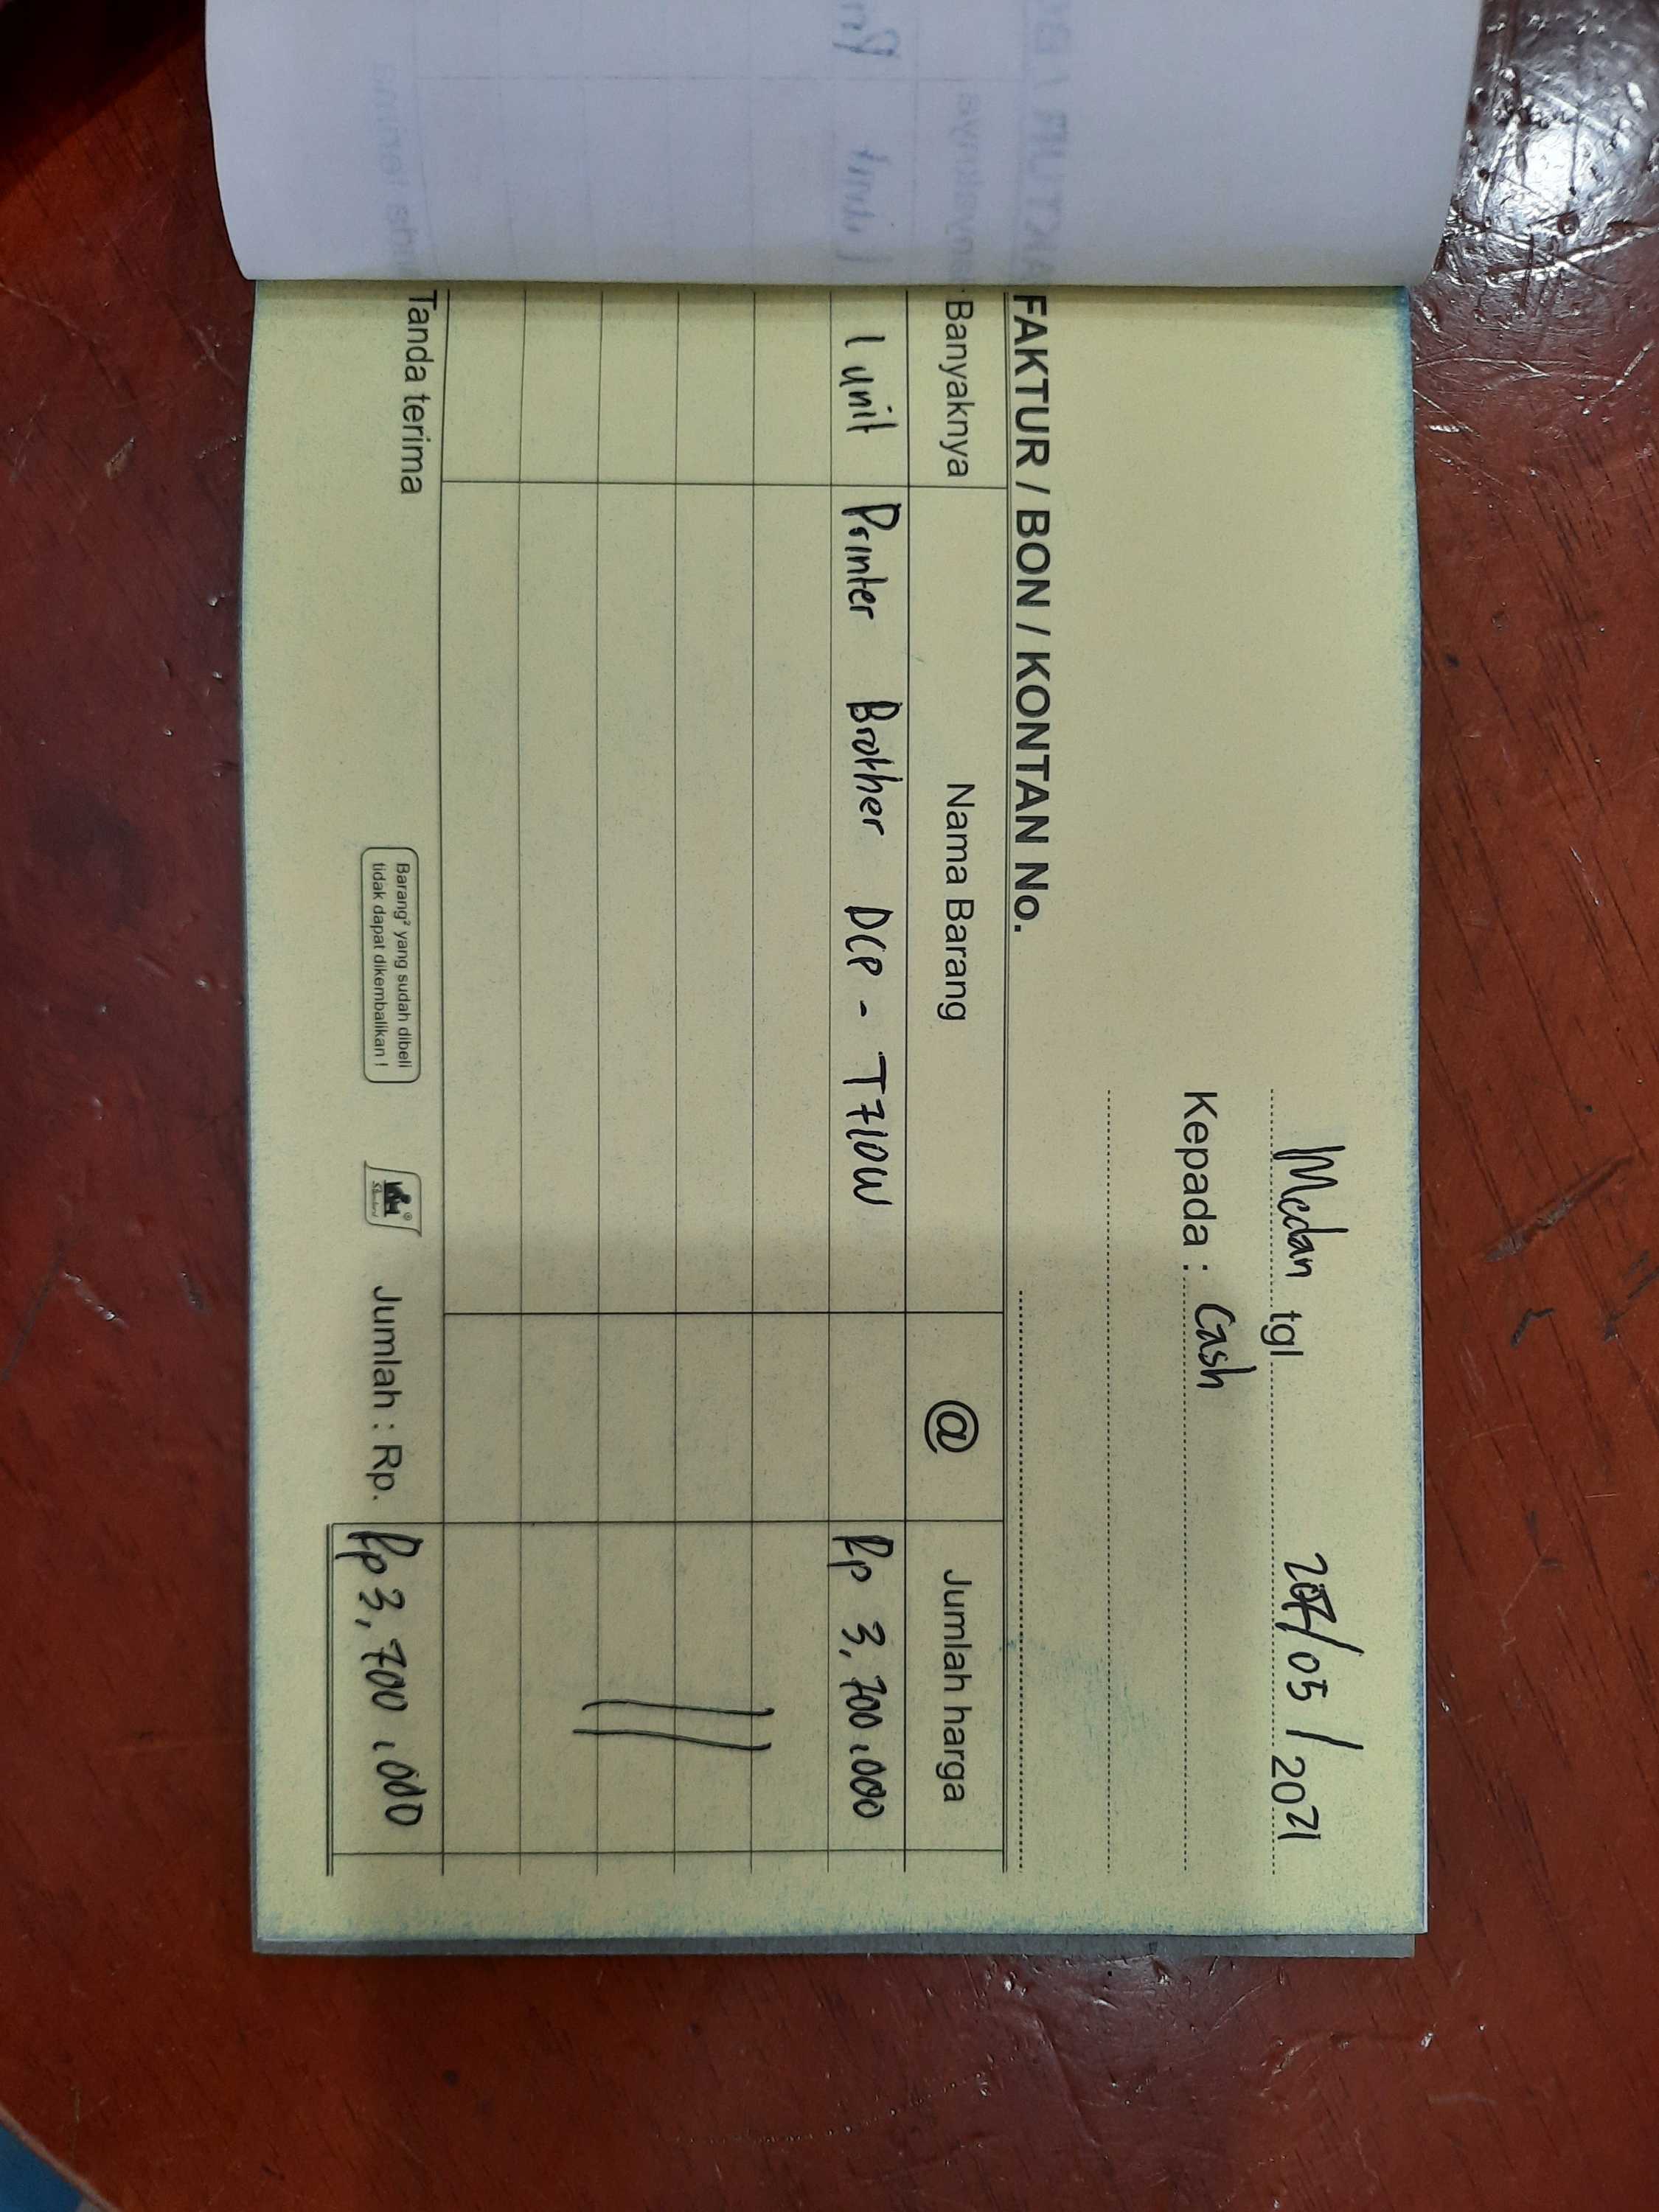 Medan tgl /05/2021
Kepada : Cash
FAKTUR / BON / KONTAN No.
Banyaknya Nama Barang @ Jumlah harga
1 unit Printer Brother DCP - T710W Rp 3,700.000
Tanda terima
Barang² yang sudah dibeli
tidak dapat dikembalikan !
Jumlah : Rp. Rp 3,700.000